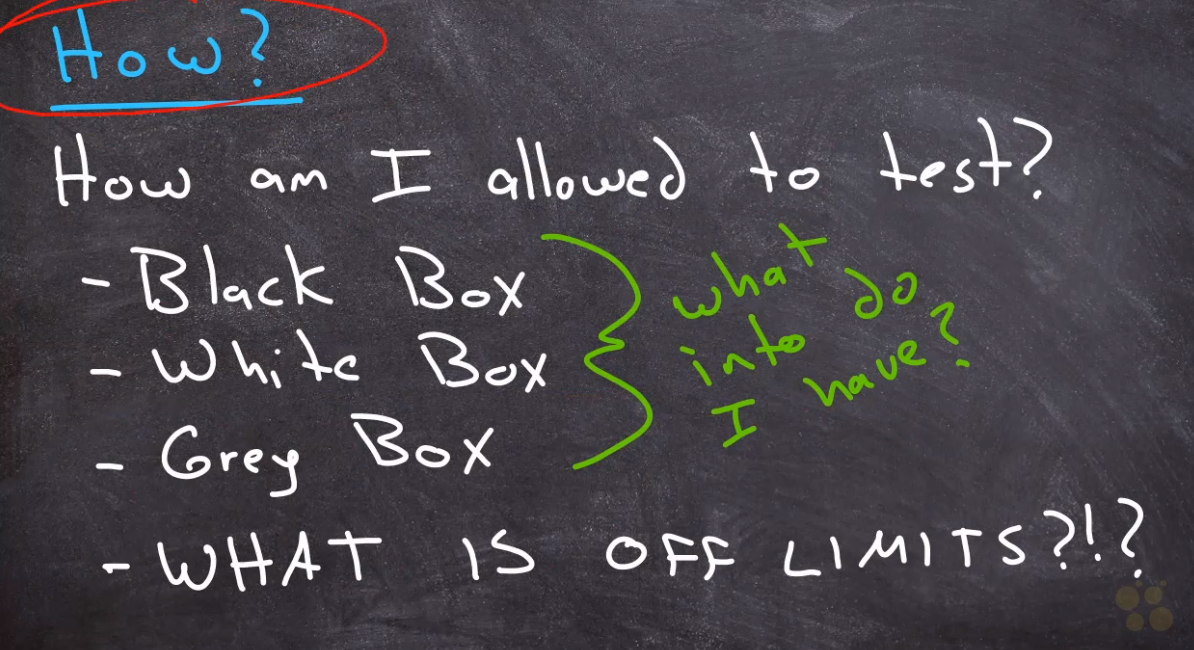 How?
How am I allowed to test?
- Black Box
- White Box
- Grey Box
what do
into
I have?
- WHAT IS OFF LIMITS?!?